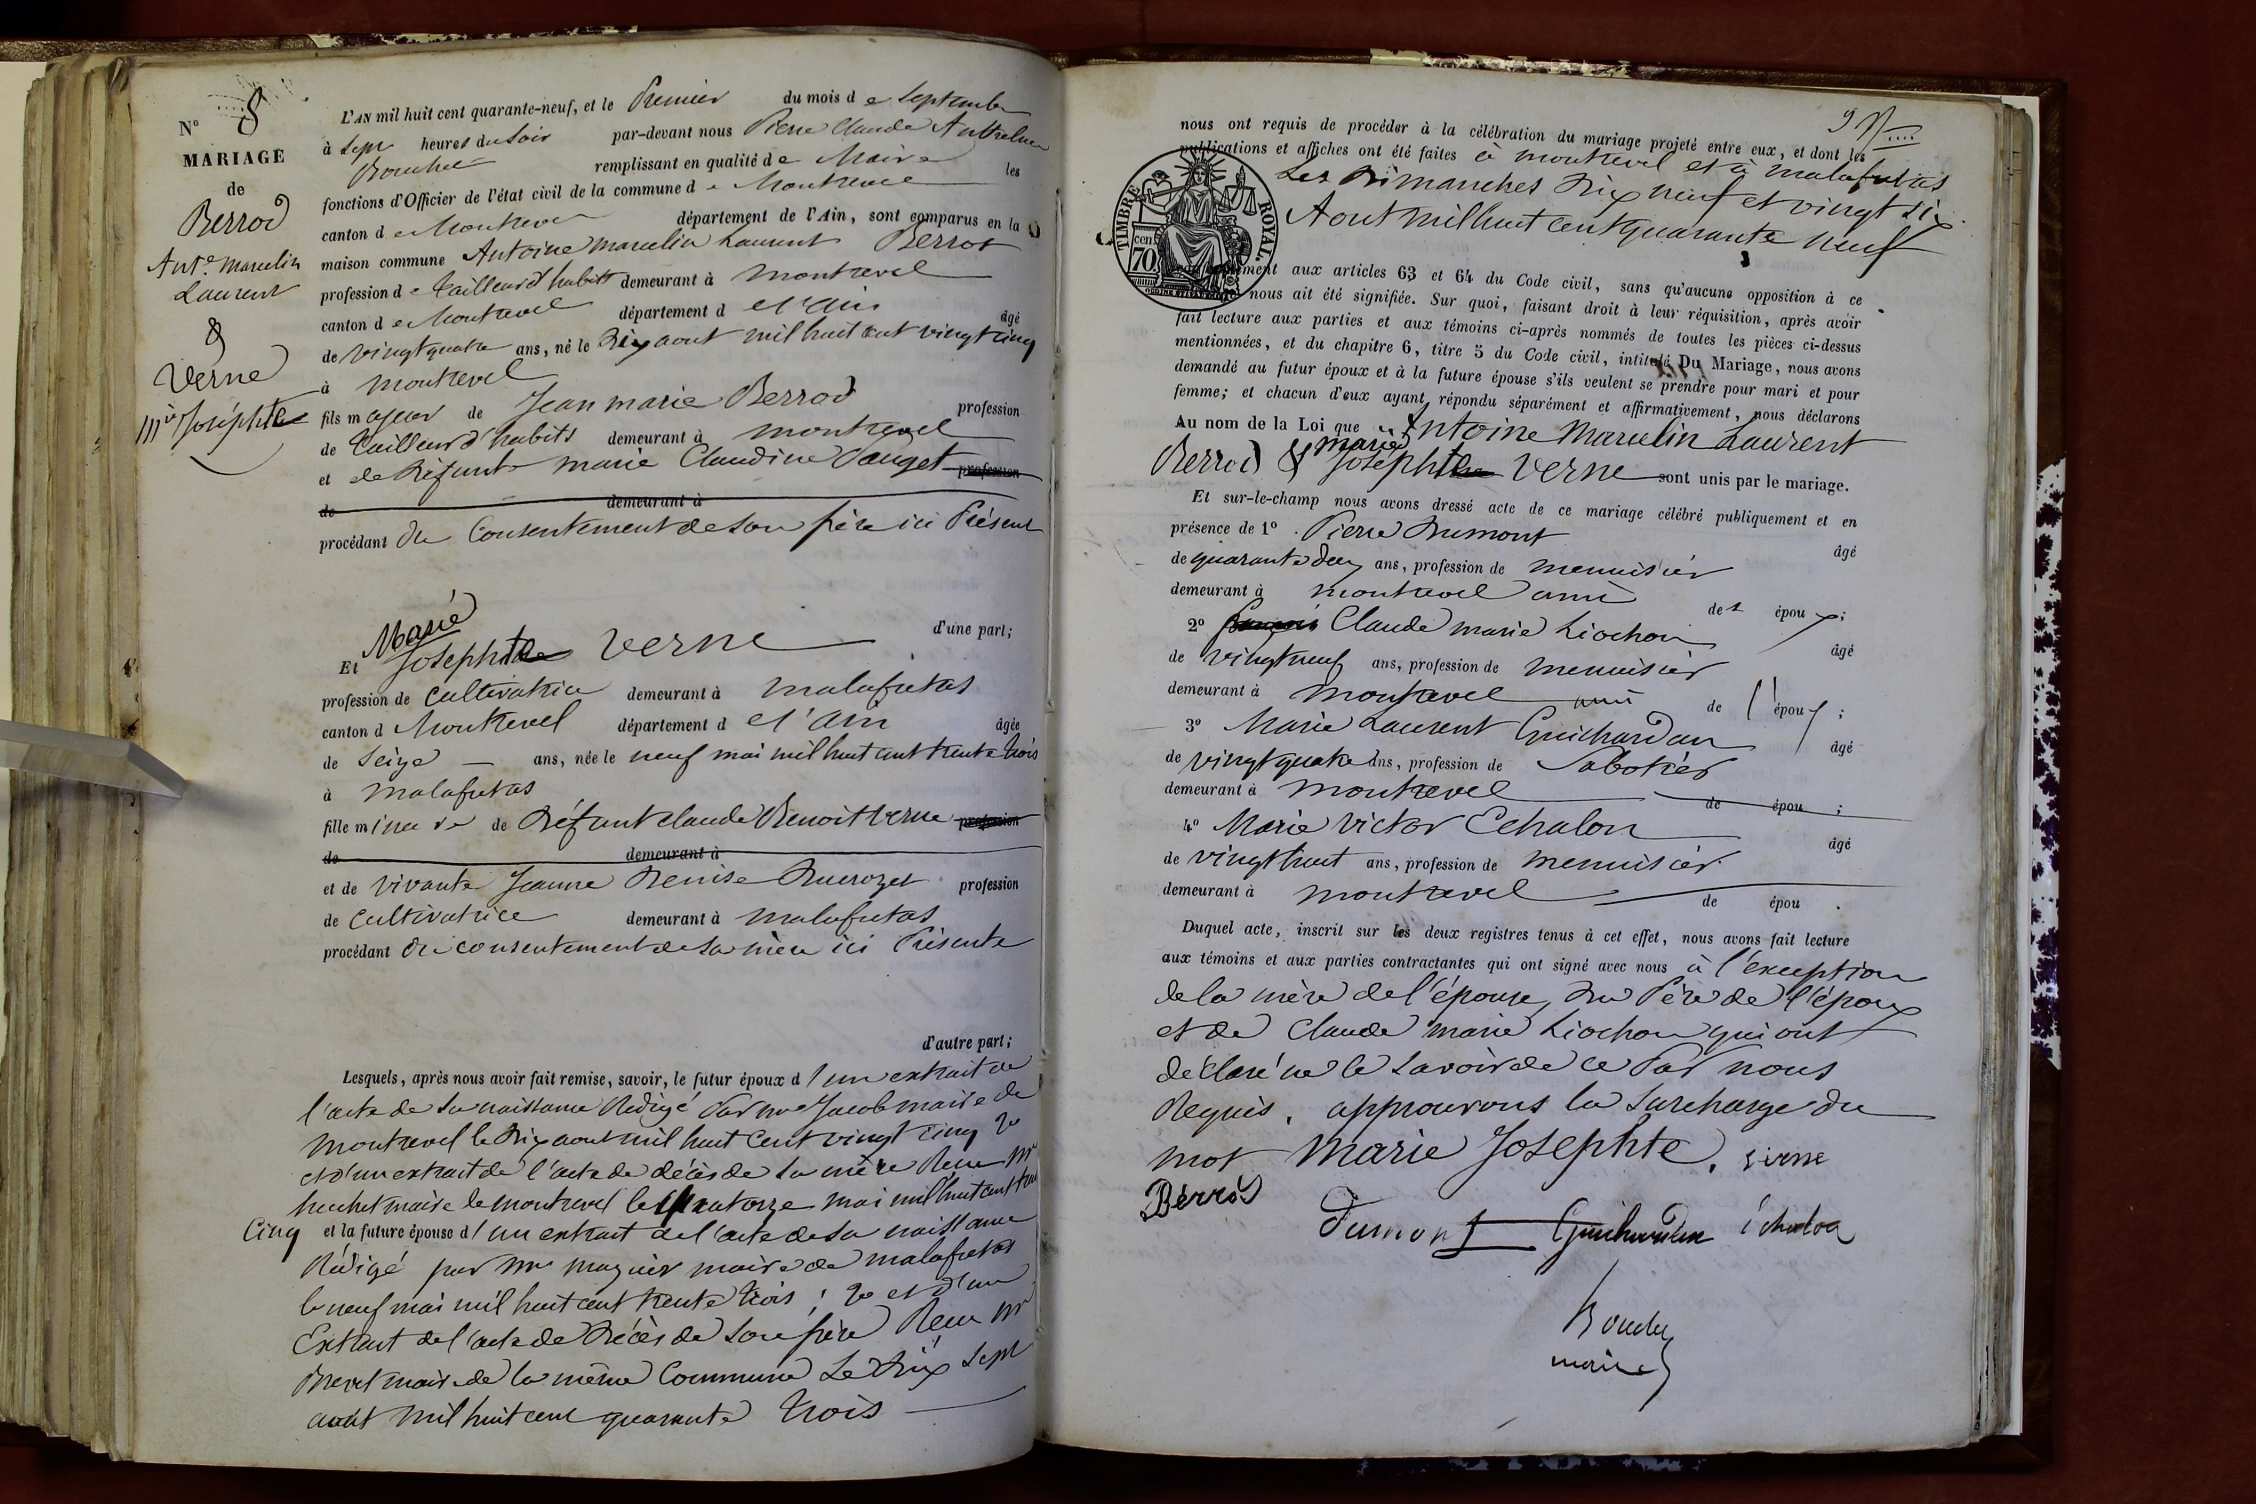 N° 8
MARIAGE
de
Berrod
Ant.e Marcelin
Laurent
&
Verne
M.ie Joséphte
L'AN mil huit cent quarante-neuf, et le Premier du mois d e Septembre
à Sept heures du Soir par-devant nous Pierre Claude Anthelme
Bouchet remplissant en qualité d e Maire les
fonctions d'Officier de l'état civil de la commune d e Montrevel
canton d e Montrevel département de l'Ain, sont comparus en la
maison commune Antoine Marcelin Laurent Berrod
profession d e tailleur d'habits demeurant à Montrevel
canton d e Montrevel département d e l'ain âgé
de vingt quatre ans, né le Dix aout mil huit cent vingt cinq
à Montrevel
fils majeur de Jean marie Berrod profession
de tailleur d'habits demeurant à Montrevel
et de Défunte marie Claudine Pauget profession
de demeurant à
procédant du Consentement de son père ici Présent
d'une part;
Marie
Et Josephte Verne
profession de Cultivatrice demeurant à malafretas
canton d Montrevel département d e l'ain âgée
de Seize ans, née le neuf mai mil huit cent trente trois
à malafretas
fille mineure de Défunt Claude Benoit Verne profession
de demeurant à
et de vivante Jeanne Denise Ducrozet profession
de Cultivatrice demeurant à malafretas
procédant du consentement de sa mère ici Présente
d'autre part;
Lesquels, après nous avoir fait remise, savoir, le futur époux d'un extrait de
l'acte de sa naissance Rédigé Par mr Jacob maire de
Montrevel le Dix aout mil huit cent vingt cinq 2o
et d'un extrait de l'acte de décès de sa mère Recu Mr
maire de montrevel le Quatorze mai mil huit cent trente
Cinq et la future épouse d'un extrait de l'acte de sa naissance
Rédigé par mr maire de malafretas
le neuf mai mil huit cent trente trois ; 2o et d'un
Extrait de l'acte de Décès de son père Recu Mr
Brevet maire de la même Commune Le Dix Sept
août mil huit cent quarante trois
nous ont requis de procéder à la célébration du mariage projeté entre eux, et dont les
publications et affiches ont été faites à montrevel et à malafretas
Les Dimanches Dix neuf et vingt six
Aout mil huit cent quarante neuf
TIMBRE ROYAL.
70 cen
aux articles 63 et 64 du Code civil, sans qu'aucune opposition à ce
nous ait été signifiée. Sur quoi, faisant droit à leur réquisition, après avoir
fait lecture aux parties et aux témoins ci-après nommés de toutes les pièces ci-dessus
mentionnées, et du chapitre 6, titre 5 du Code civil, intitulé Du Mariage, nous avons
demandé au futur époux et à la future épouse s'ils veulent se prendre pour mari et pour
femme; et chacun d'eux ayant répondu séparément et affirmativement, nous déclarons
Au nom de la Loi que Antoine Marcelin Laurent
Berrod & marie Joséphte Verne sont unis par le mariage.
Et sur-le-champ nous avons dressé acte de ce mariage célébré publiquement et en
présence de 1° Pierre Dumont âgé
de quarante deux ans, profession de menuisier
demeurant à montrevel ami de l' époux;
2° Claude marie Liochon âgé
de vingt neuf ans, profession de menuisier
demeurant à montrevel ami de l' époux;
3° Marie Laurent Guichardan âgé
de vingt quatre ans, profession de Sabotier
demeurant à montrevel de épou ;
4° Marie Victor Echalon âgé
de vingt huit ans, profession de menuisier
demeurant à montrevel de épou .
Duquel acte, inscrit sur les deux registres tenus à cet effet, nous avons fait lecture
aux témoins et aux parties contractantes qui ont signé avec nous à l'exception
de la mère de l'épouse, du Père de l'époux
et de Claude marie Liochon qui ont
déclaré ne le savoir de ce Par nous
Requis. approuvons la surcharge du
mot Marie Josephte. verne
Bérrod
Dumont Guichardan échalon
Bouchet
maire